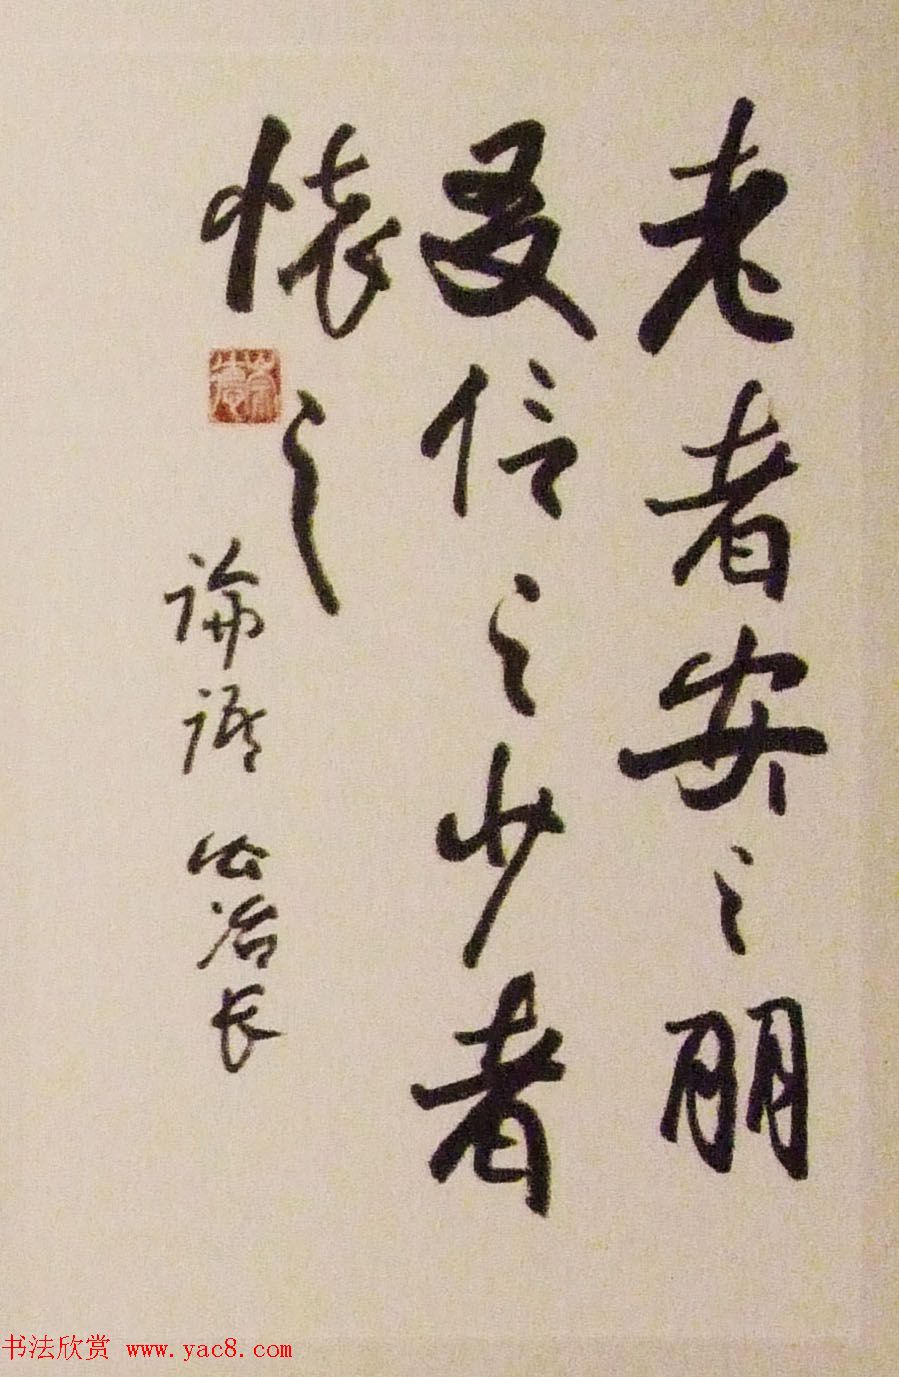 老者安之朋
友信之少者
懷之
論語 公冶长
书法欣赏 www.yac8.com